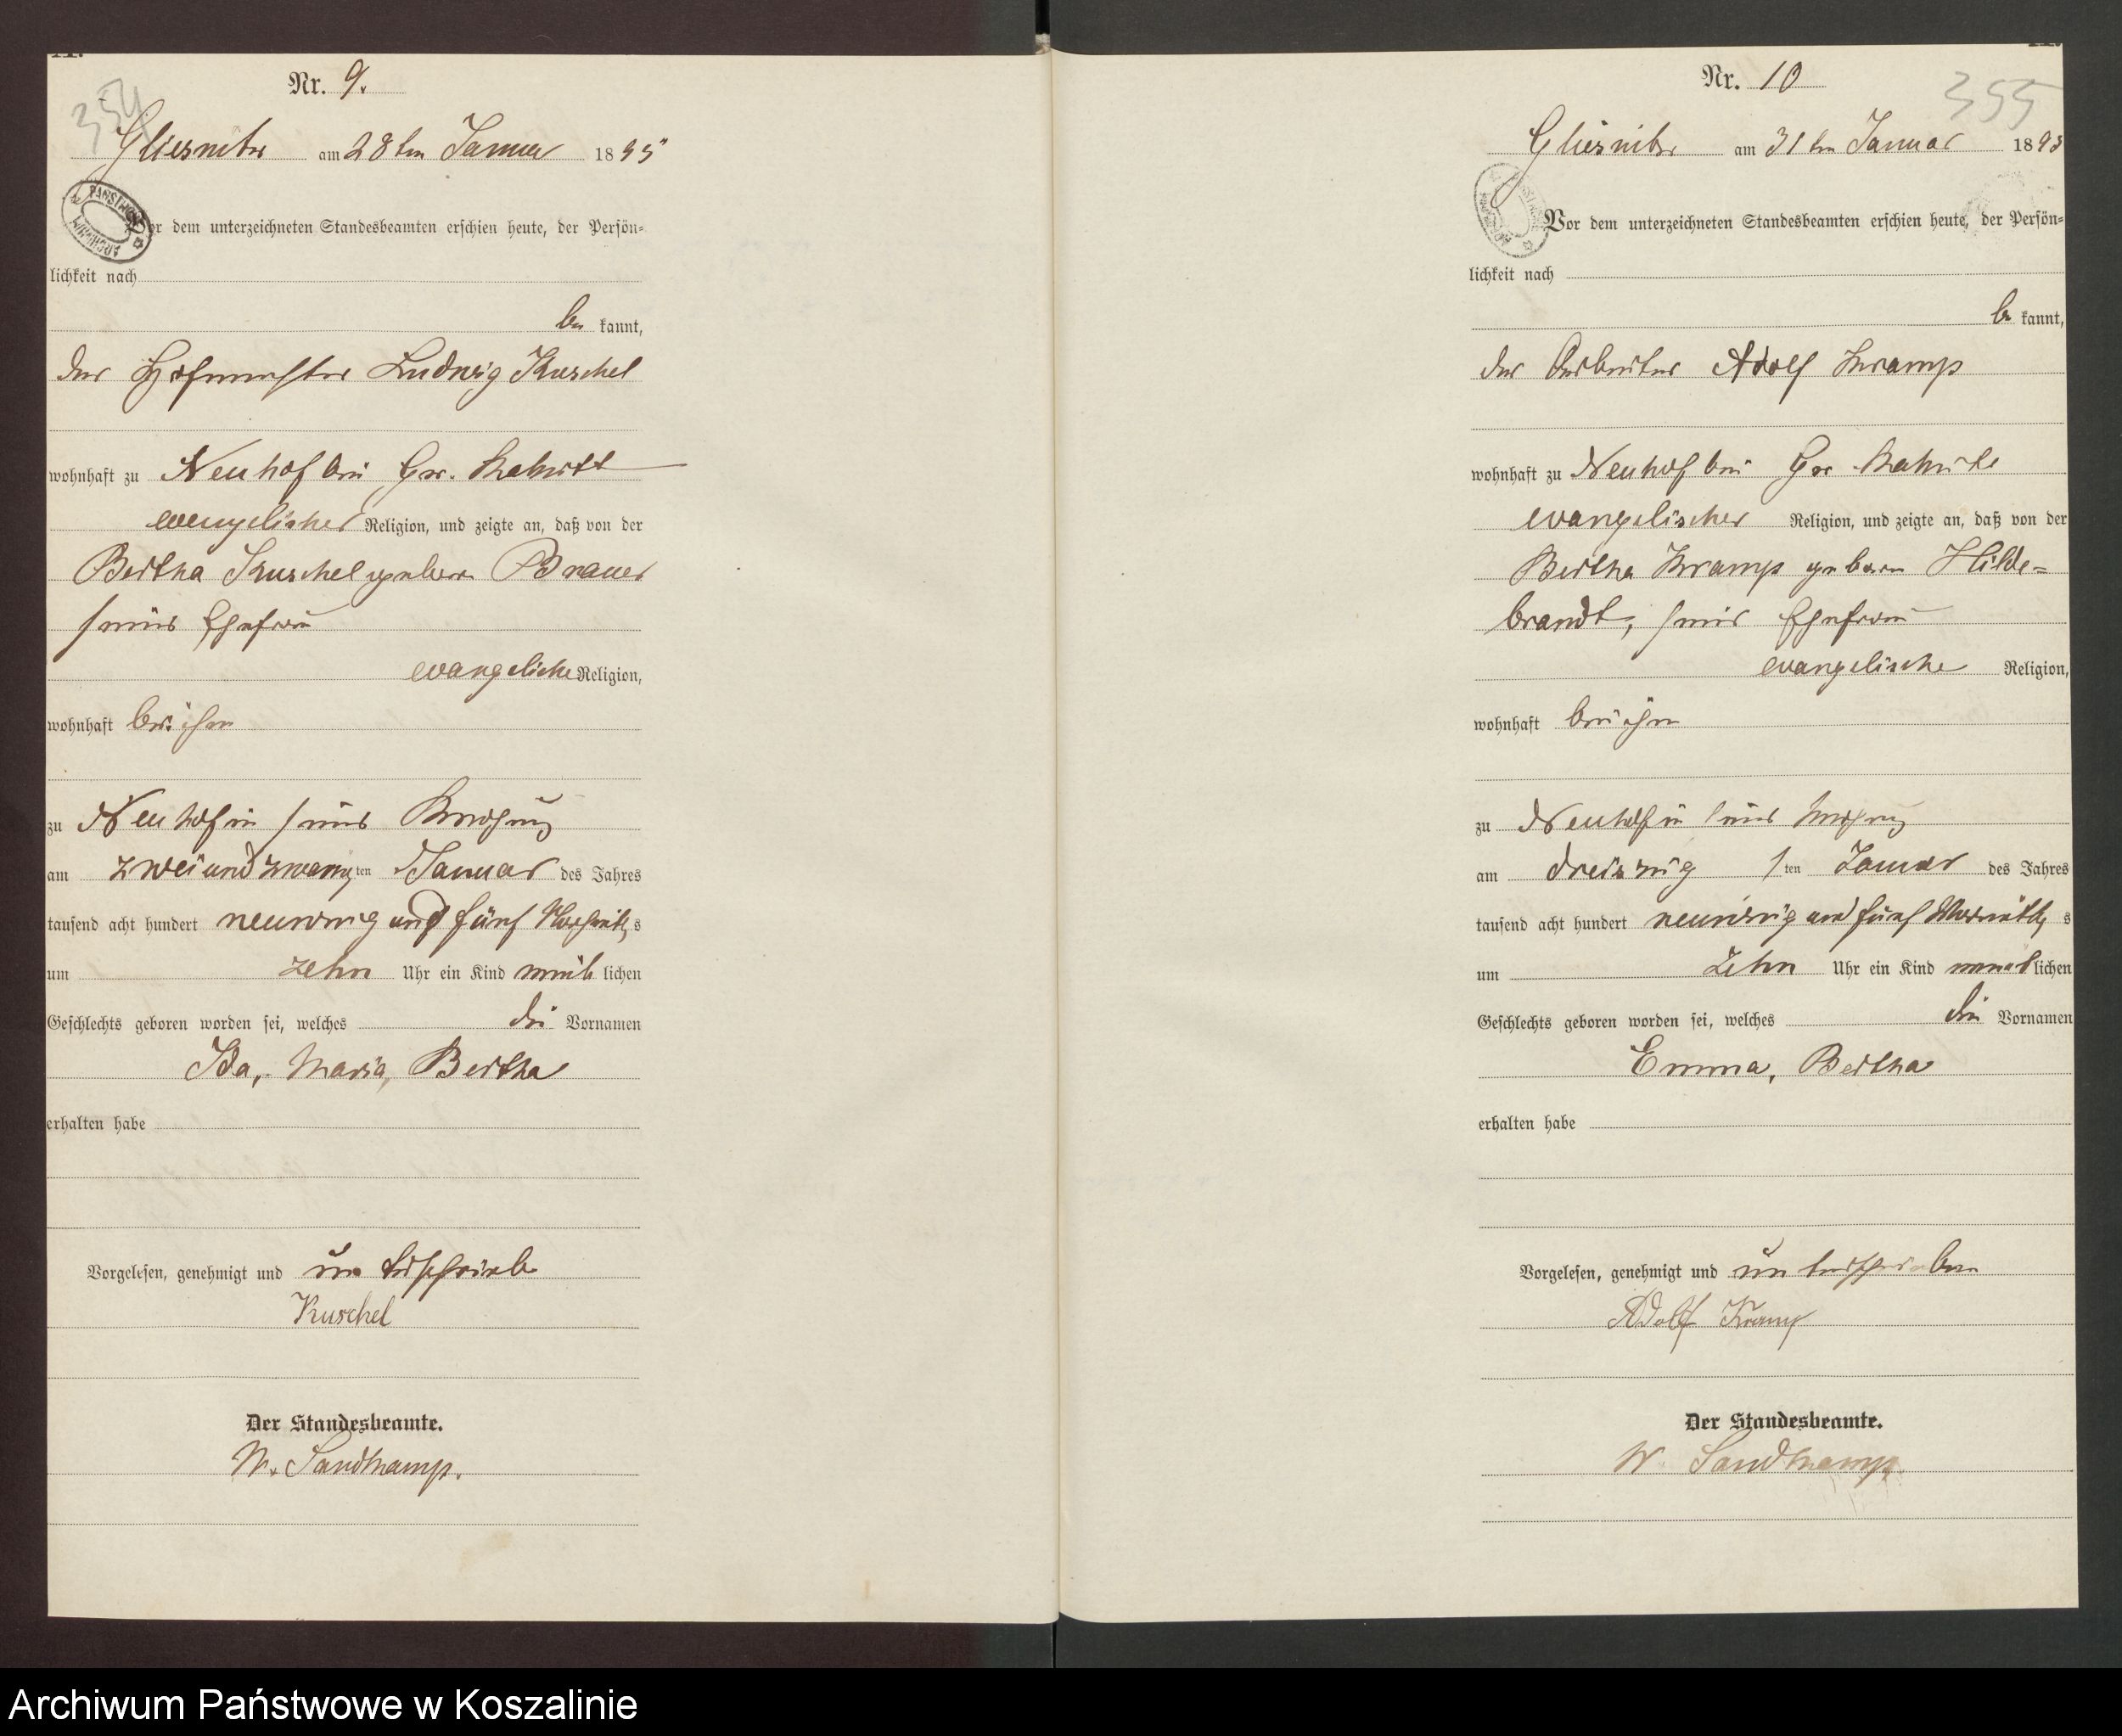 Nr. 9.
354
Gliesnitz am 28ten Januar 1895
Vor dem unterzeichneten Standesbeamten erschien heute, der Persön=
lichkeit nach
be kannt,
der Hofmeister Ludwig Kuschel
wohnhaft zu Neuhof bei Gr.
evangelischer Religion, und zeigte an, daß von der
Bertha Kuschel geboren Brauer
seiner Ehefrau
evangeliche Religion,
wohnhaft bei ihm
zu Neuhof in seiner Wohnung
am zweiundzwanzigten Januar des Jahres
tausend acht hundert neunzig und fünf Nachmittags
um zehn Uhr ein Kind weib lichen
Geschlechts geboren worden sei, welches die Vornamen
Ida, Maria, Bertha
erhalten habe
Vorgelesen, genehmigt und unterschrieben
Kuschel
Der Standesbeamte.
W. Sandkamp.
Nr. 10
355
Gliesnitz am 31ten Januar 1895
Vor dem unterzeichneten Standesbeamten erschien heute, der Persön=
lichkeit nach
be kannt,
der Arbeiter Adolf Kramp
wohnhaft zu Neuhof bei Gr
evangelischer Religion, und zeigte an, daß von der
Bertha Kramp geboren Hilde=
brandt, seiner Ehefrau
evangelische Religion,
wohnhaft bei ihm
zu Neuhof in seiner Wohnung
am dreiszigsten Januar des Jahres
tausend acht hundert neunzig und fünf Vormittags
um Zehn Uhr ein Kind weiblichen
Geschlechts geboren worden sei, welches die Vornamen
Emma, Bertha
erhalten habe
Vorgelesen, genehmigt und unterschrieben
Adolf Kramp
Der Standesbeamte.
W. Sandkamp.
Archiwum Państwowe w Koszalinie